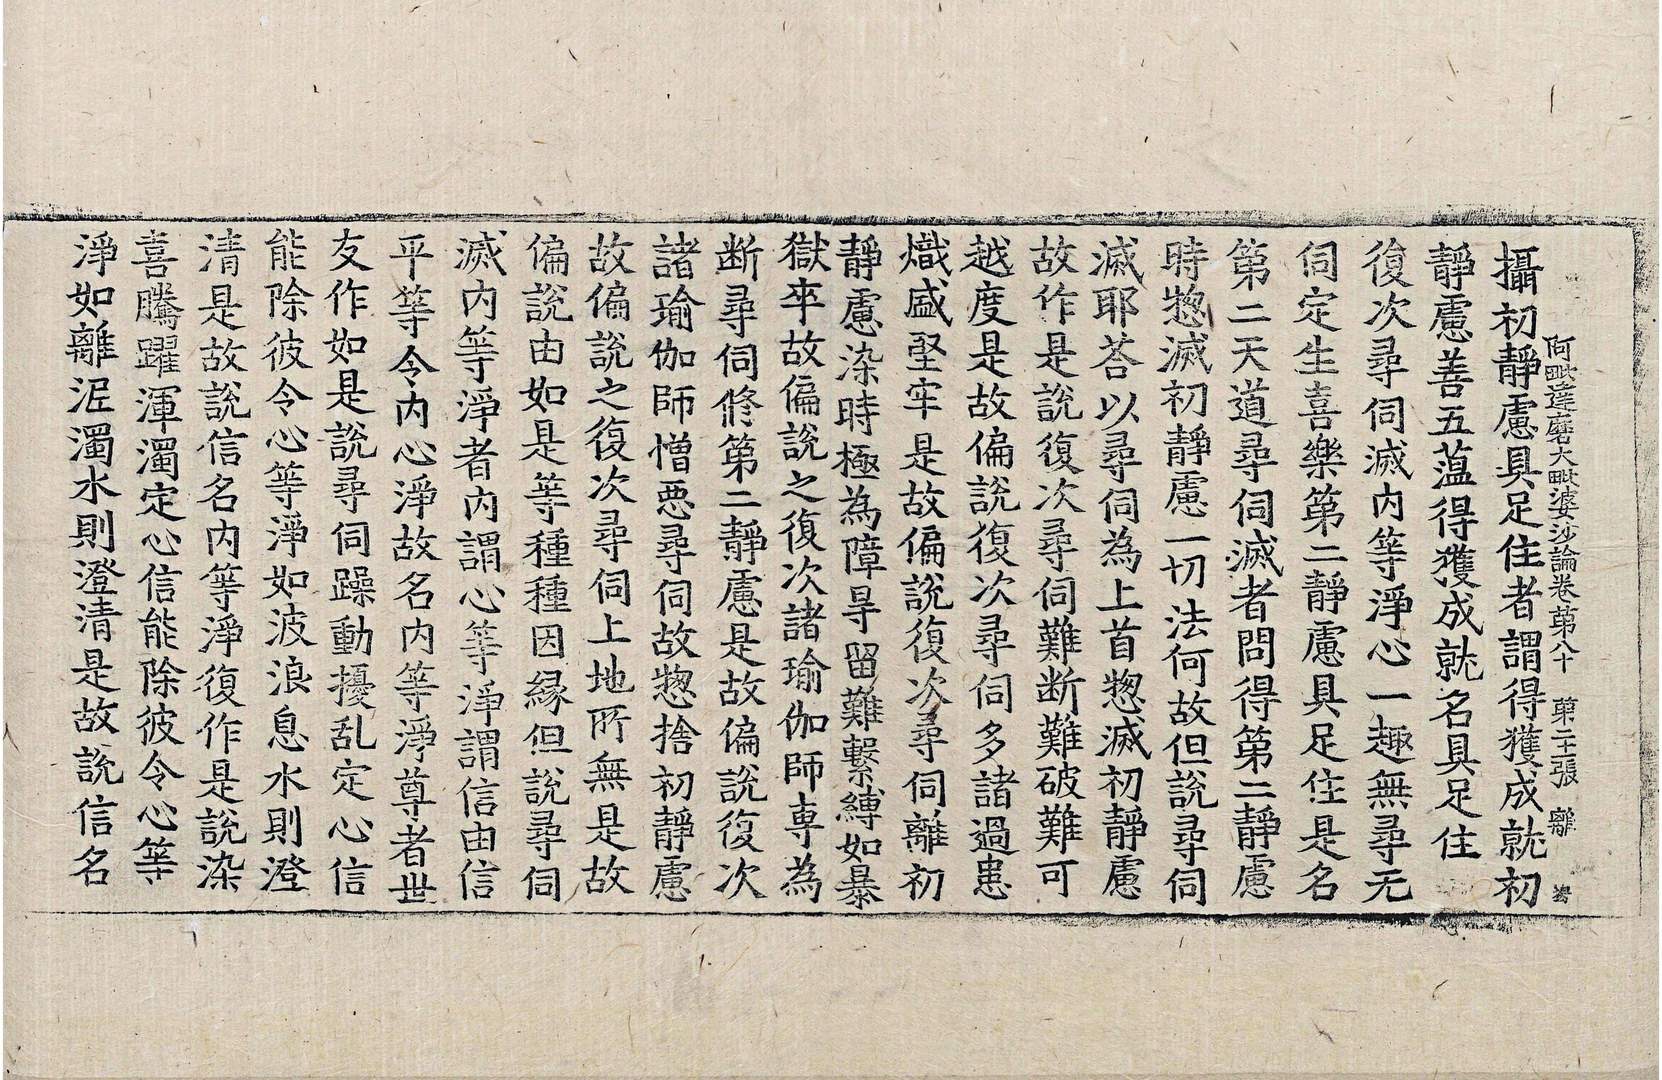 阿毗達磨大毗婆沙論卷第八十 第二十張 離
攝初靜慮具足住者謂得獲成就初
靜慮善五蘊得獲成就名具足住
復次尋伺滅内等淨心一趣無尋无
伺定生喜樂第二靜慮具足住是名
第二天道尋伺滅者問得第二靜慮
時惣滅初靜慮一切法何故但說尋伺
滅耶荅以尋伺為上首惣滅初靜慮
故作是說復次尋伺難断難破難可
越度是故偏說復次尋伺多諸過患
熾盛堅牢是故偏說復次尋伺離初
靜慮染時極為障㝵留難繫縛如暴
獄卒故偏說之復次諸瑜伽師專為
断尋伺修第二靜慮是故偏說復次
諸瑜伽師憎惡尋伺故惣捨初靜慮
故偏說之復次尋伺上地所無是故
偏說由如是等種種因緣但說尋伺
滅内等淨者内謂心等淨謂信由信
平等令内心淨故名内等淨尊者世
友作如是說尋伺躁動擾乱定心信
能除彼令心等淨如波浪息水則澄
清是故說信名内等淨復作是說染
喜騰躍渾濁定心信能除彼令心等
淨如離泥濁水則澄清是故說信名